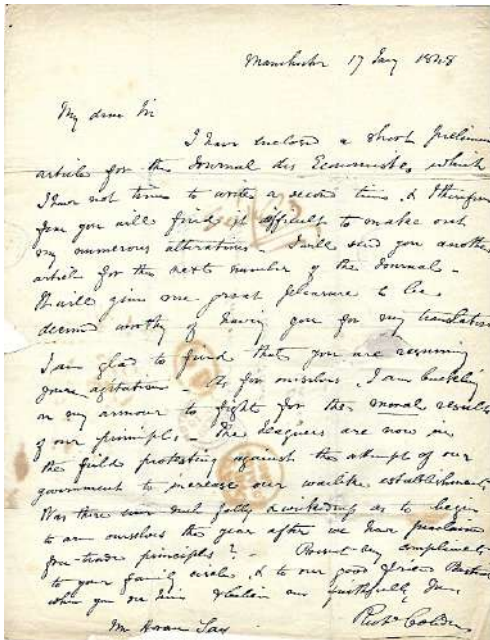 Manchester 17 Jany 1848
My dear Sir
I have inclosed a short prelimin
article for the Journal des Economistes which
I have not time to write a second time, & I therefore
fear you will find it difficult to make out
my numerous alterations - I will send you another
article for the next number of the Journal -
It will give me great pleasure to be
deemed worthy of having you for my translator
I am glad to find that you are resuming
your agitation - As for ourselves, I am buckling
on my armour to fight for the moral results
of our principle - The leaguers are now in
the field protesting against the attempt of our
government to increase our warlike establishments
Was there ever such folly & wickedness as to begin
to arm ourselves the year after we have proclaimed
free-trade principles? - Present my compliments
to your family circle, & to our good friend Bastiat
when you see him & believe me faithfully yours
Richd Cobden
Mr Horace Say